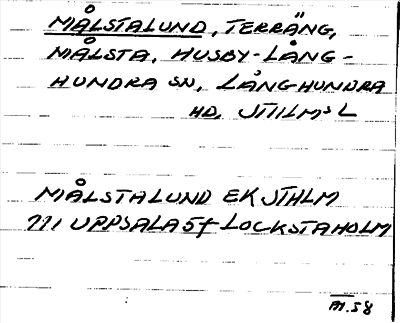 MÅLSTALUND, TERRÄNG,
MÅLSTA, HUSBY-LÅNG-
HUNDRA SN, LÅNGHUNDRA
HD, STHLMS L
MÅLSTALUND EK STHLM
111 UPPSALA 5f LOCKSTAHOLM
A1.58